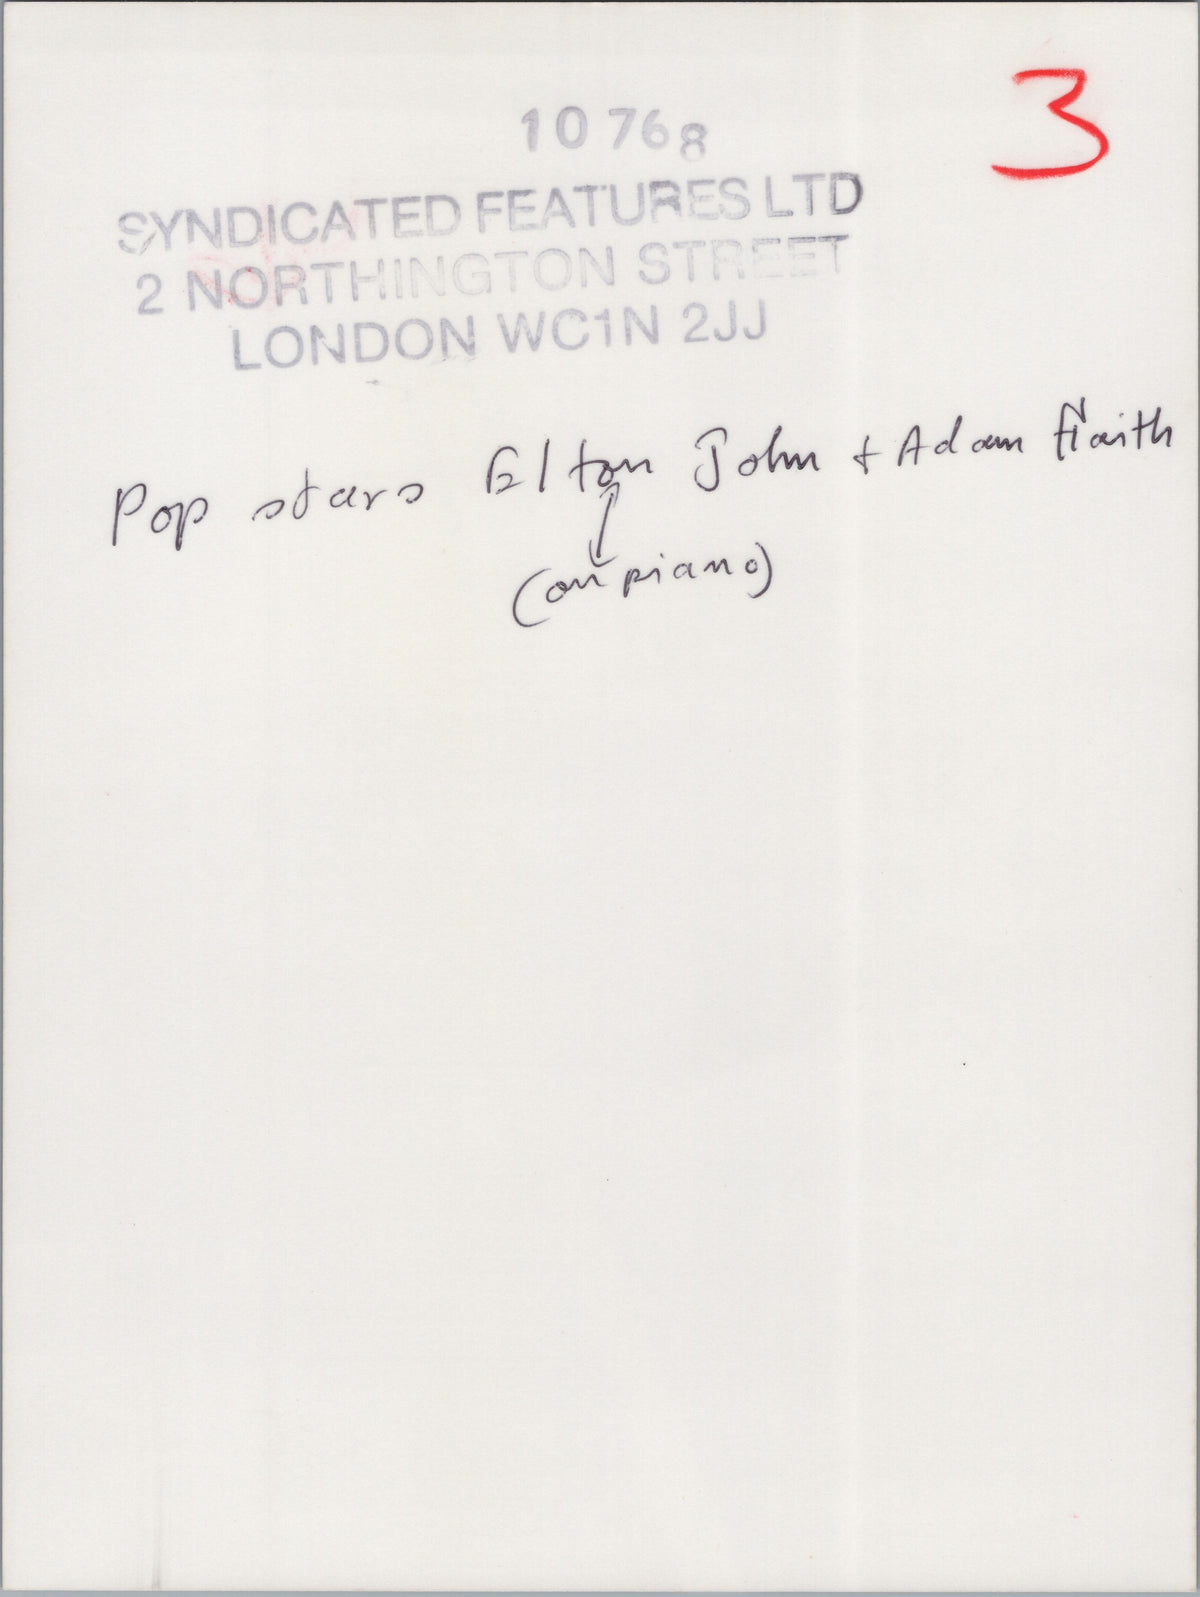 3
10 768
SYNDICATED FEATURES LTD
2 NORTHINGTON STREET
LONDON WC1N 2JJ
Pop stars Elton John + Adam Faith
(on piano)